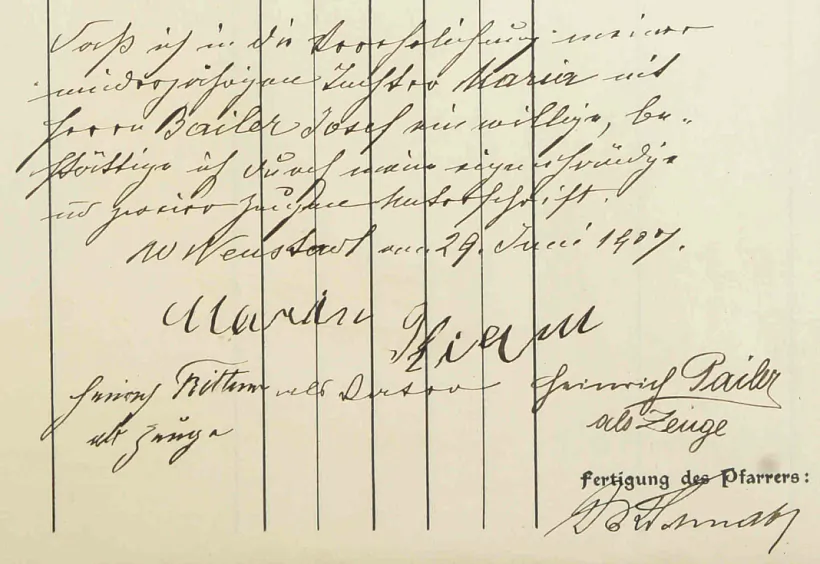 Daß ich in die Verehelichung meiner
minderjährigen Tochter Maria mit
Herrn Bailer Josef einwillige, be-
stättige ich durch meine eigenhändige
und zweier Zeugen Unterschrift.
W Neustadt am 29. Juni 1907.
Martin
als Vater
Heinrich Pailer
als Zeuge
als Zeuge
Fertigung des Pfarrers: